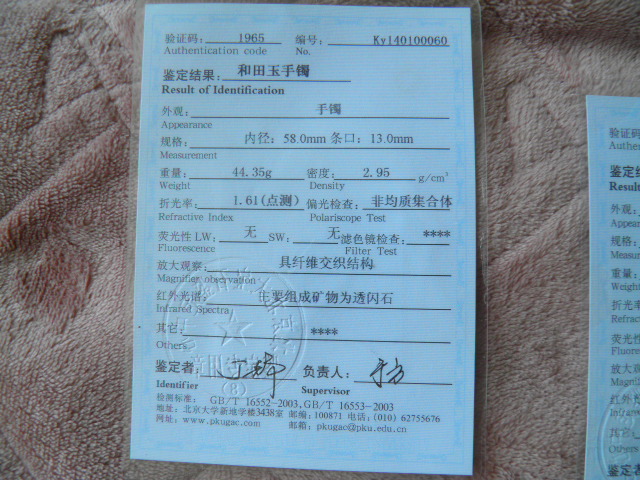 验证码: 1965 编号: Ky140100060
Authentication code No.
鉴定结果: 和田玉手镯
Result of Identification
外观: 手镯
Appearance
规格: 内径: 58.0mm 条口: 13.0mm
Measurement
重量: 44.35g 密度: 2.95 g/cm³
Weight Density
折光率: 1.61(点测) 偏光检查: 非均质集合体
Refractive Index Polariscope Test
荧光性 LW: 无 SW: 无 滤色镜检查: ****
Fluorescence Filter Test
放大观察: 具纤维交织结构
Magnifier observation
红外光谱: 主要组成矿物为透闪石
Infrared Spectra
其它: ****
Others
鉴定者: 负责人:
Identifier Supervisor
检测标准: GB/T 16552-2003,GB/T 16553-2003
地址: 北京大学新地学楼3438室 邮编: 100871 电话: (010) 62755676
网址: www.pkugac.com 邮箱: pkugac@pku.edu.cn
验证码
Authen
鉴定结
Result
外观:
Appeara
规格:
Measur
重量:
Weight
折光率
Refrac
荧光性
Fluores
放大观
Magnif
红外光
Infrare
其它
Others
鉴定者